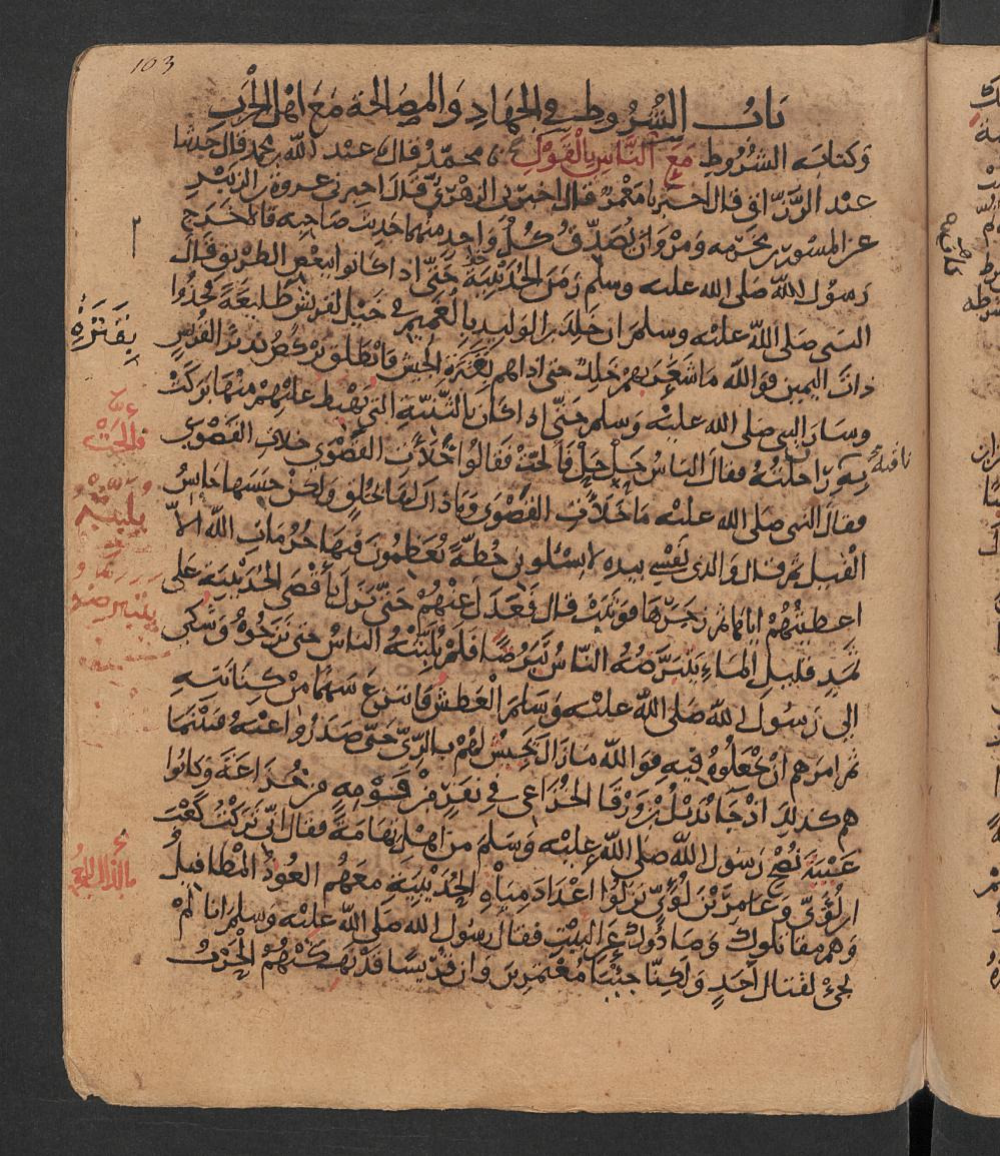 103
باب الشروط في الجهاد والمصالحة مع اهل الحرب
وكتابة الشروط مع الناس بالقول محمد قال عبد الله بن محمد قال حدثنا
عبد الرزاق قال اخبرنا معمر قال اخبرني الزهري قال اخبرني عروة بن الزبير
عن المسور بن مخرمه ومروان يصدق كل واحد منهما حديث صاحبه قالا خرج
رسول الله صلى الله عليه وسلم زمن الحديبية حتى اذا كانوا ببعض الطريق قال
النبي صلى الله عليه وسلم ان خلد بن الوليد بالغميم في خيل لقريش طليعة فخذوا
ذات اليمين فوالله ما شعر بهم خلد حتى اذا هم بقترة الجيش فانطلق يركض نذيرا لقريش
وسار النبي صلى الله عليه وسلم حتى اذا كان بالثنية التي يهبط عليهم منها بركت
به راحلته فقال الناس حل حل فالحت فقالوا خلات القصوى خلات القصوى
فقال النبي صلى الله عليه ما خلات القصوى وما ذاك لها بخلق ولكن حبسها حابس
الفيل ثم قال والذي نفسي بيده لا يسئلوني خطة يعظمون فيها حرمات الله الا
اعطيتهم اياها ثم زجرها فوثبت قال فعدل عنهم حتى نزل باقصى الحديبية على
ثمد قليل الماء يتبرضه الناس تبرضا فلم يلبثه الناس حتى نزحوه وشكي
الى رسول الله صلى الله عليه وسلم العطش فانتزع سهما من كنانته
ثم امرهم ان يجعلوه فيه فوالله ما زال يجيش لهم بالري حتى صدروا عنه فبينما
هم كذلك اذ جا بديل بن ورقا الخزاعي في نفر من قومه من خزاعة وكانوا
عيبة نصح رسول الله صلى الله عليه وسلم من اهل تهامة فقال اني تركت كعب
ابن لؤي وعامر بن لؤي نزلوا اعداد مياه الحديبية معهم العوذ المطافيل
وهم مقاتلوك وصادوك عن البيت فقال رسول الله صلى الله عليه وسلم انا لم
نجئ لقتال احد ولكنا جئنا معتمرين وان قريشا قد نهكتهم الحرب
بقترة
فالحت
ناقته